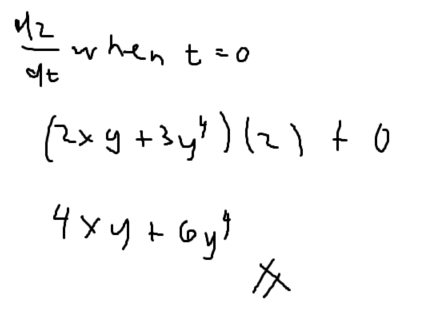 dz/dt when t = 0
(2xy + 3y⁴)(2) + 0
4xy + 6y⁴